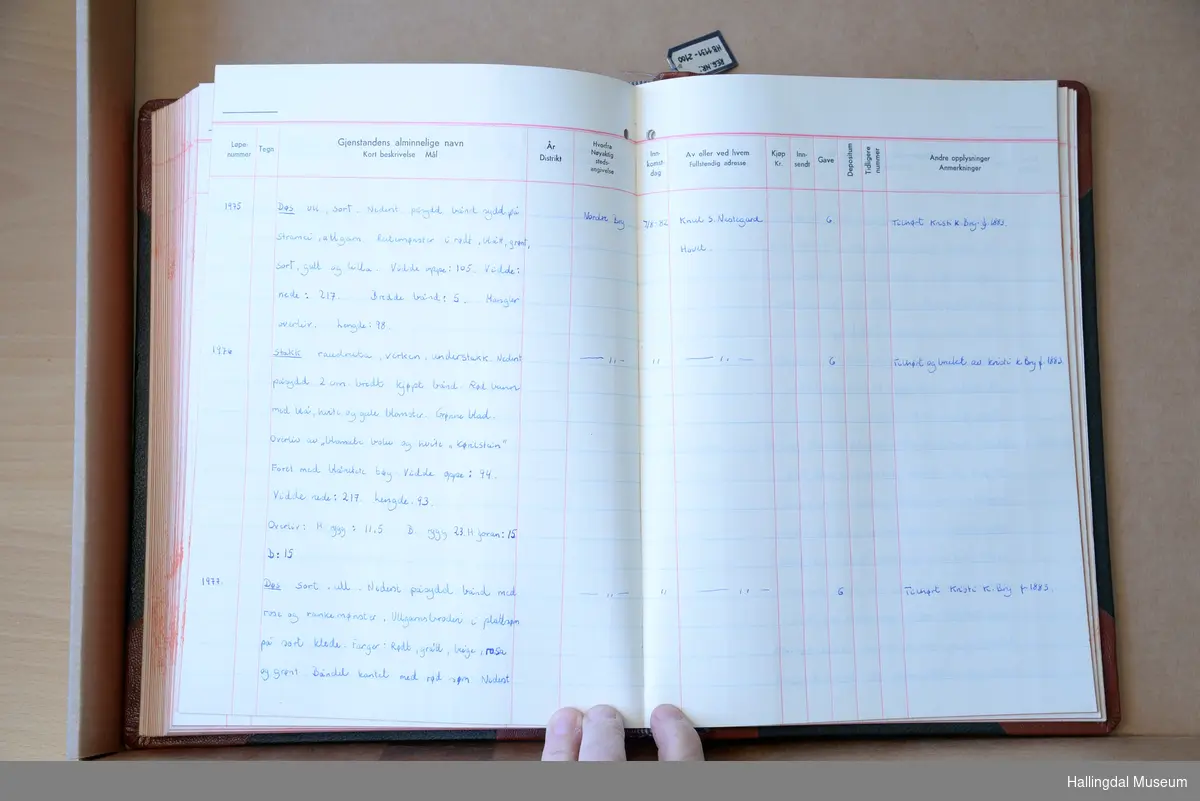 REG. NR.:
HB 1131 - 2100
Løpe-
nummer
Tegn
Gjenstandens alminnelige navn
Kort beskrivelse Mål
År
Distrikt
Hvorfra
Nøyaktig
steds-
angivelse
Inn-
komst-
dag
Av eller ved hvem
Fullstendig adresse
Kjøp
Kr.
Inn-
sendt
Gave
Depositum
Tidligere
nummer
Andre opplysninger
Anmerkninger
1975 Døs ull, sort. Nederst påsydd bånd sydd på Nordre Bry 7/8-82 Knud S. Nestegard G Tilhørt Kristi K. Bry f. 1883.
stramei, ullgarn. Rutemønster i rødt, blått, grønt, Hovet.
sort, gult og lilla. Vidde oppe: 105. Vidde:
nede: 217. Bredde bånd: 5. Mangler
overliv. Lengde: 98.
1976 Stakk raudmeta, virken, understakk. Nederst — " — " — " — G Tilhørt og brukt av Kristi K Bry f. 1883
påsydd 2 cm. bredt kjøpt bånd. Rød bunn
med blå, hvite og gule blomster. Grønne blad.
Overliv av
og hvite
Foret med Vidde oppe: 94.
Vidde nede: 217. Lengde. 93.
Overliv: H. rygg: 11.5 B. rygg 23. H foran: 15
B: 15
1977. Døs sort, ull. Nederst påsydd bånd med — " — " — " — G Tilhørt Kristi K. Bry f. 1883.
rose og rankemønster. Ullgarnsbroderi i plattsøm
på sort klede. Farger: Rødt, grått, beige, rosa
og grønt. Båndet kantet med rød søm Nederst
Hallingdal Museum